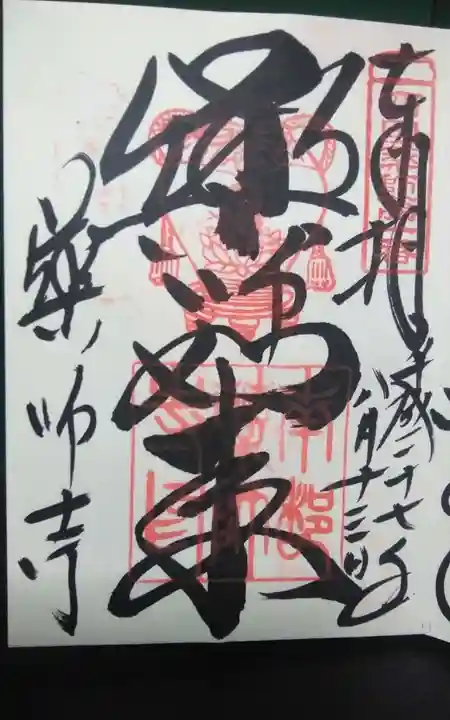 奉拝
平成二十七年
八月十三日
薬師如来
薬師寺